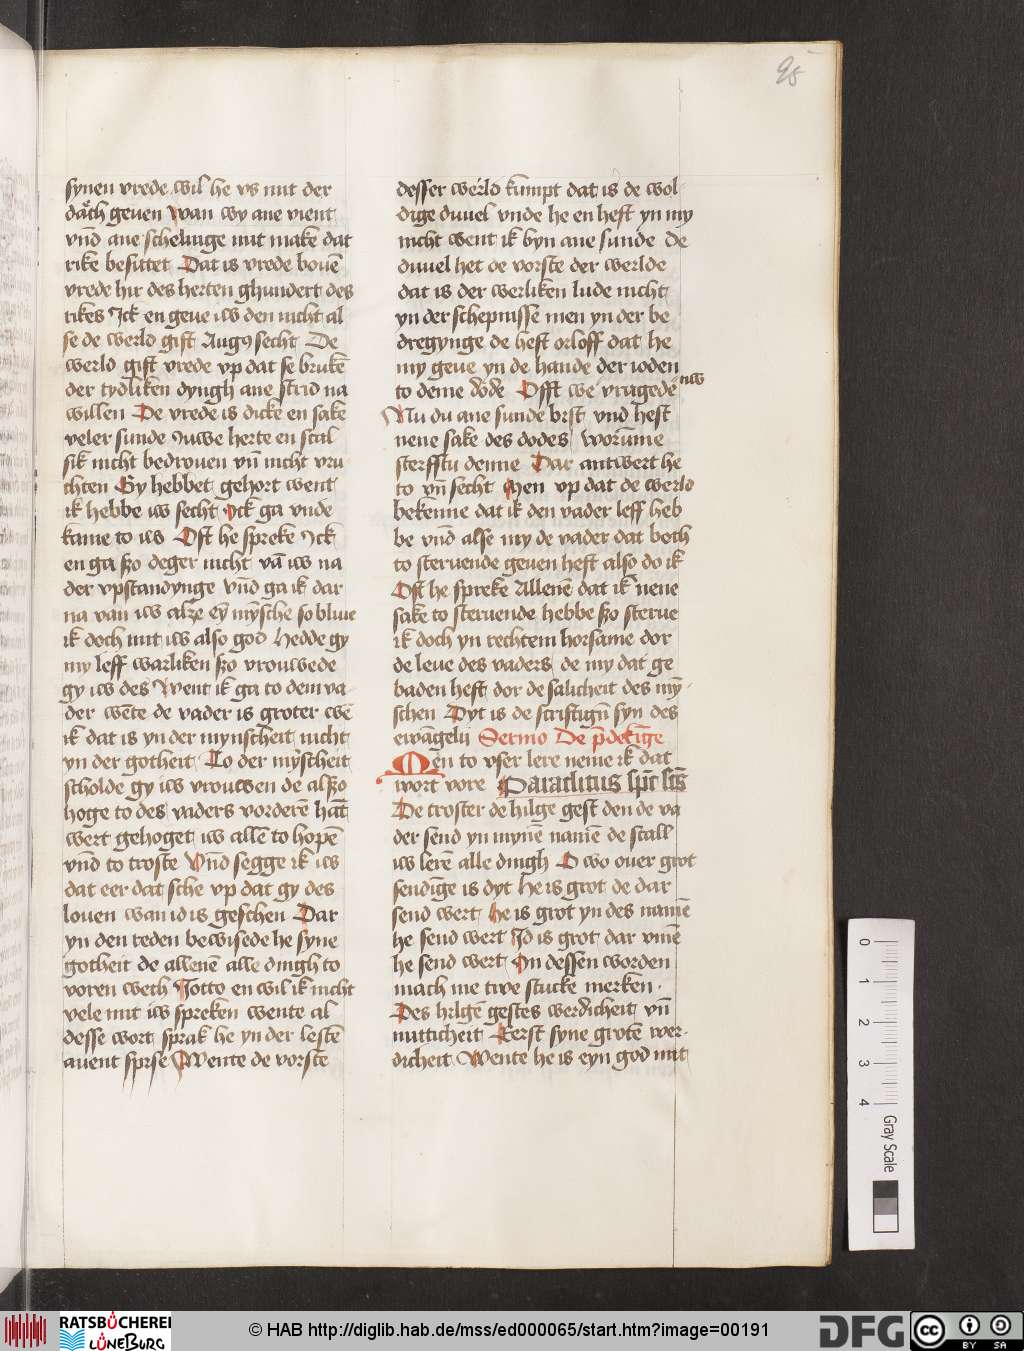 95
synen vrede wil he vs mit der
dach geuen wan wy ane vient
vnd ane schelinge mit make dat
rike besittet Dat is vrede bouē
vrede hir des herten ghundert des
rikes Ick en geue iw den nicht al
se de werld gift Augꝯ secht De
werld gift vrede vp dat se brukē
der tydliken dyngh ane strid na
willen De vrede is dicke en sake
veler sunde Juwe herte en scal
sik nicht bedrouen vn̄ nicht vru
chten Gy hebbet gehort went
ik hebbe iw secht Ick ga vnde
kame to iw Oft he spreke Ick
en ga szo deger nicht vā iw na
der vpstandynge vnd ga ik dar
na van iw alze eyn mȳsche so bliue
ik doch mit iw also god Hedde gy
my leff warliken szo vrouwede
gy iw des Went ik ga to dem va
der wēte de vader is groter wē
ik dat is yn der mynscheit nicht
yn der gotheit To der mȳscheit
scholde gy iw vrouwen de alszo
hoge to des vaders vorderē hāt
wert gehoget iw allē to hopē
vnd to troste Vnd segge ik iw
dat eer dat sche vp dat gy des
louen wan id is geschen Dar
yn den reden bewisede he syne
gotheit de allenē alle dingh to
voren weth Jotto en wil ik nicht
vele mit iw spreken wente al
desse wort sprak he yn der lestē
auent spise Wente de vorste
desser werld kumpt dat is de wol
dige duuel vnde he en heft yn my
nicht went ik byn ane sunde De
duuel het de vorste der werlde
dat is der werliken lude nicht
yn der schepnisse men yn der be
dregynge de heft orloff dat he
my geue yn de hande der ioden
to deme dode Offt we vragede nw
Nu du ane sunde bist vnd hest
nene sake des dodes worūme
sterfftu denne Dar antwert he
to vn̄ secht Men vp dat de werld
bekenne dat ik den vader leff heb
be vnd alse my de vader dat both
to steruende geuen heft also do ik
Oft he spreke Allenē dat ik nene
sake to steruende hebbe szo sterue
ik doch yn rechtem horsame dor
de leue des vaders de my dat ge
baden heft dor de salicheit des mȳ
schen Dyt is de scriftign̄ syn des
ewāgelij Sermo De p̄dekīge
Men to vser lere neme ik dat
wort vore Paraclitus spūs scūs
De troster de hilge gest den de va
der send yn mynē namē de scall
iw lerē alle dingh O wo ouer grot
sendīge is dyt he is grot de dar
send wert he is grot yn des namē
he send wert Id is grot dar vmē
he send wert In dessen worden
mach me twe stucke merken
Des hilgē gestes werdicheit vn̄
nutticheit Eerst syne grotē wer
dicheit Wente he is eyn god mit
0 1 2 3 4
Gray Scale
RATSBÜCHEREI
LÜNEBURG
© HAB http://diglib.hab.de/mss/ed000065/start.htm?image=00191
DFG
cc
BY SA